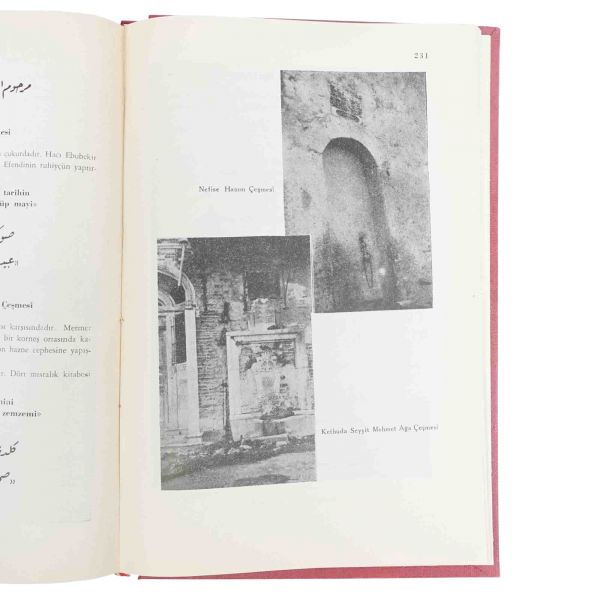 مرحوم
esi
çukurdadır. Hacı Ebubekir
Efendinin ruhiyçün yaptır-
tarihin
üp mayi»
Çeşmesi
karşısındadır. Mermer
bir korneş ortasında ka-
ön hazne cephesine yapış-
Dört mısralık kitabesi
zemzemi»
231
Nefise Hanım Çeşmesi
Kethüda Seyyit Mehmet Ağa Çeşmesi